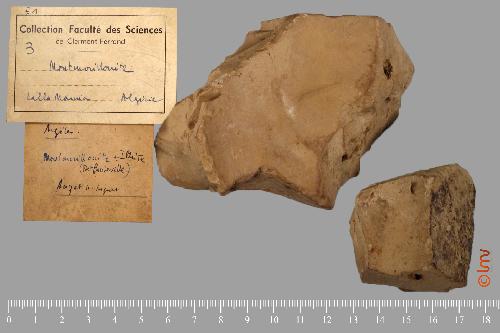 E1
Collection Faculté des Sciences
de Clermont-Ferrand
3
Montmorillonite
Lalla Marnia Algérie
Argiles.
Montmorillonite + Illite
0 1 2 3 4 5 6 7 8 9 10 11 12 13 14 15 16 17 18
© lmv